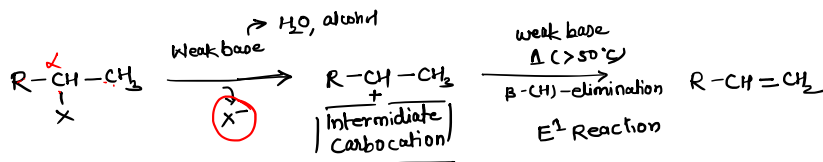 H₂O, alcohol
Weak base
α
R-CH-CH₃
X
X⁻
R-CH-CH₃
+
Intermidiate
Carbocation
weak base
Δ (>50°C)
β-(H)-elimination
E¹ Reaction
R-CH=CH₂